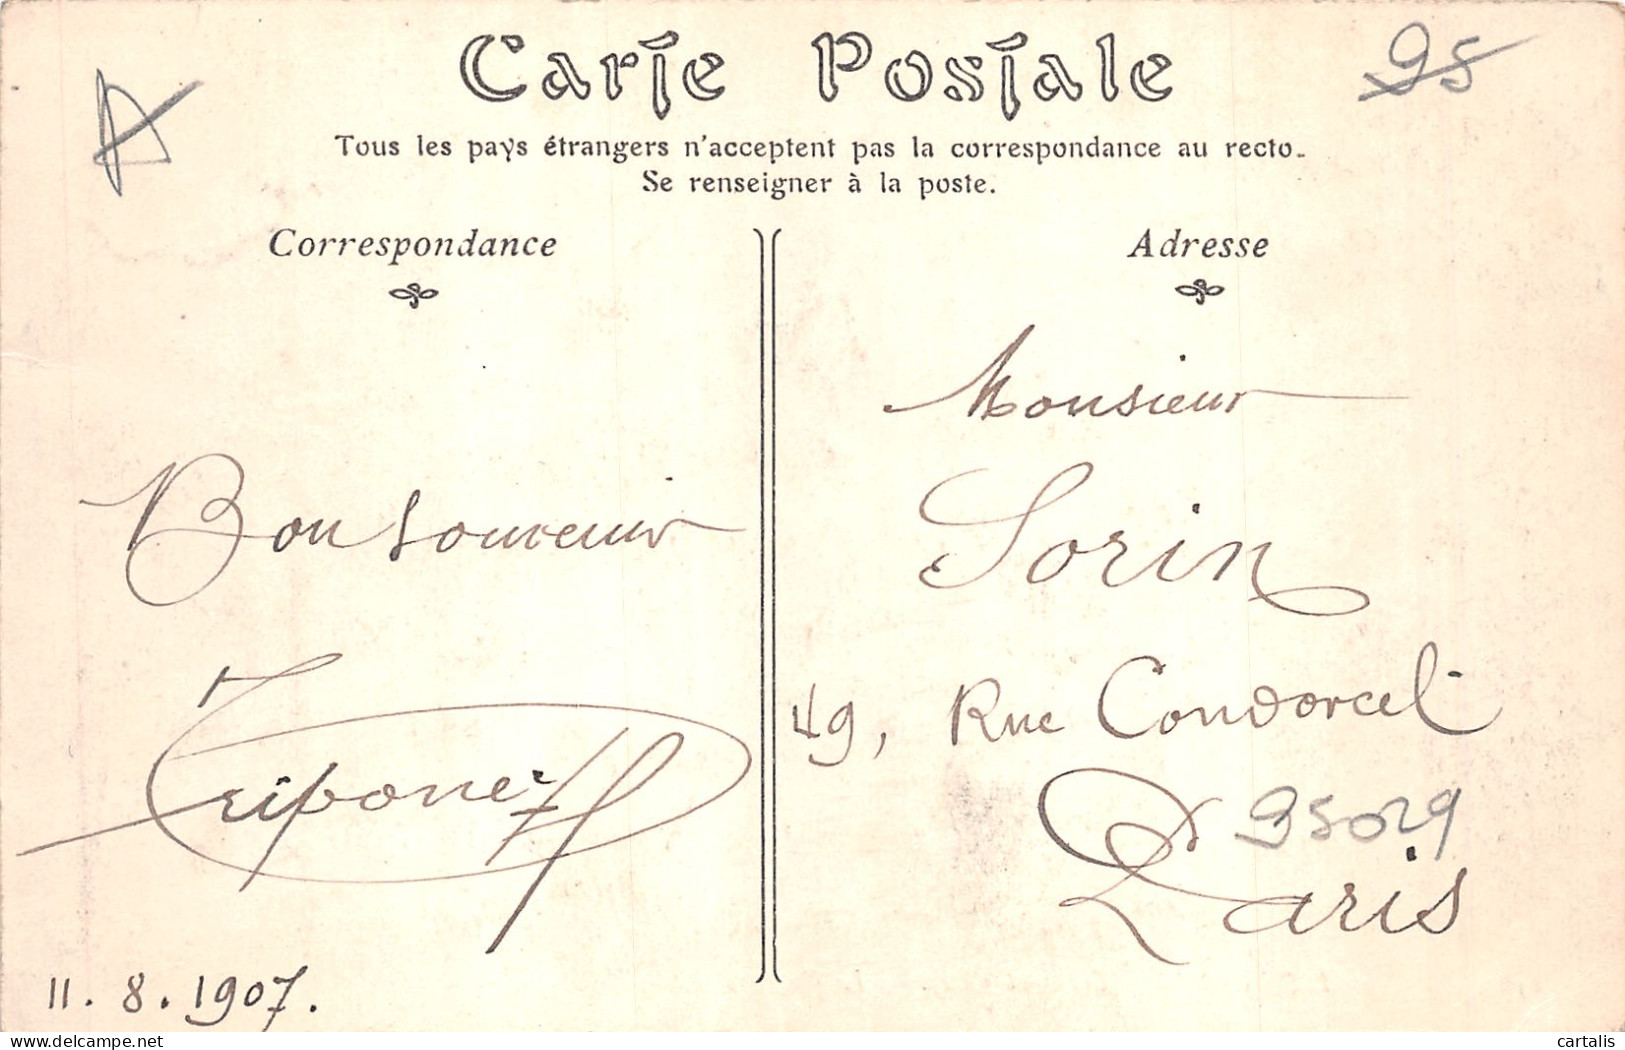 Carte Postale
95
Tous les pays étrangers n'acceptent pas la correspondance au recto.
Se renseigner à la poste.
Correspondance
Bon Souvenir
11. 8. 1907.
Adresse
Monsieur
Sorin
49, Rue Condorcet
95029
Paris
delcampe.net
cartalis